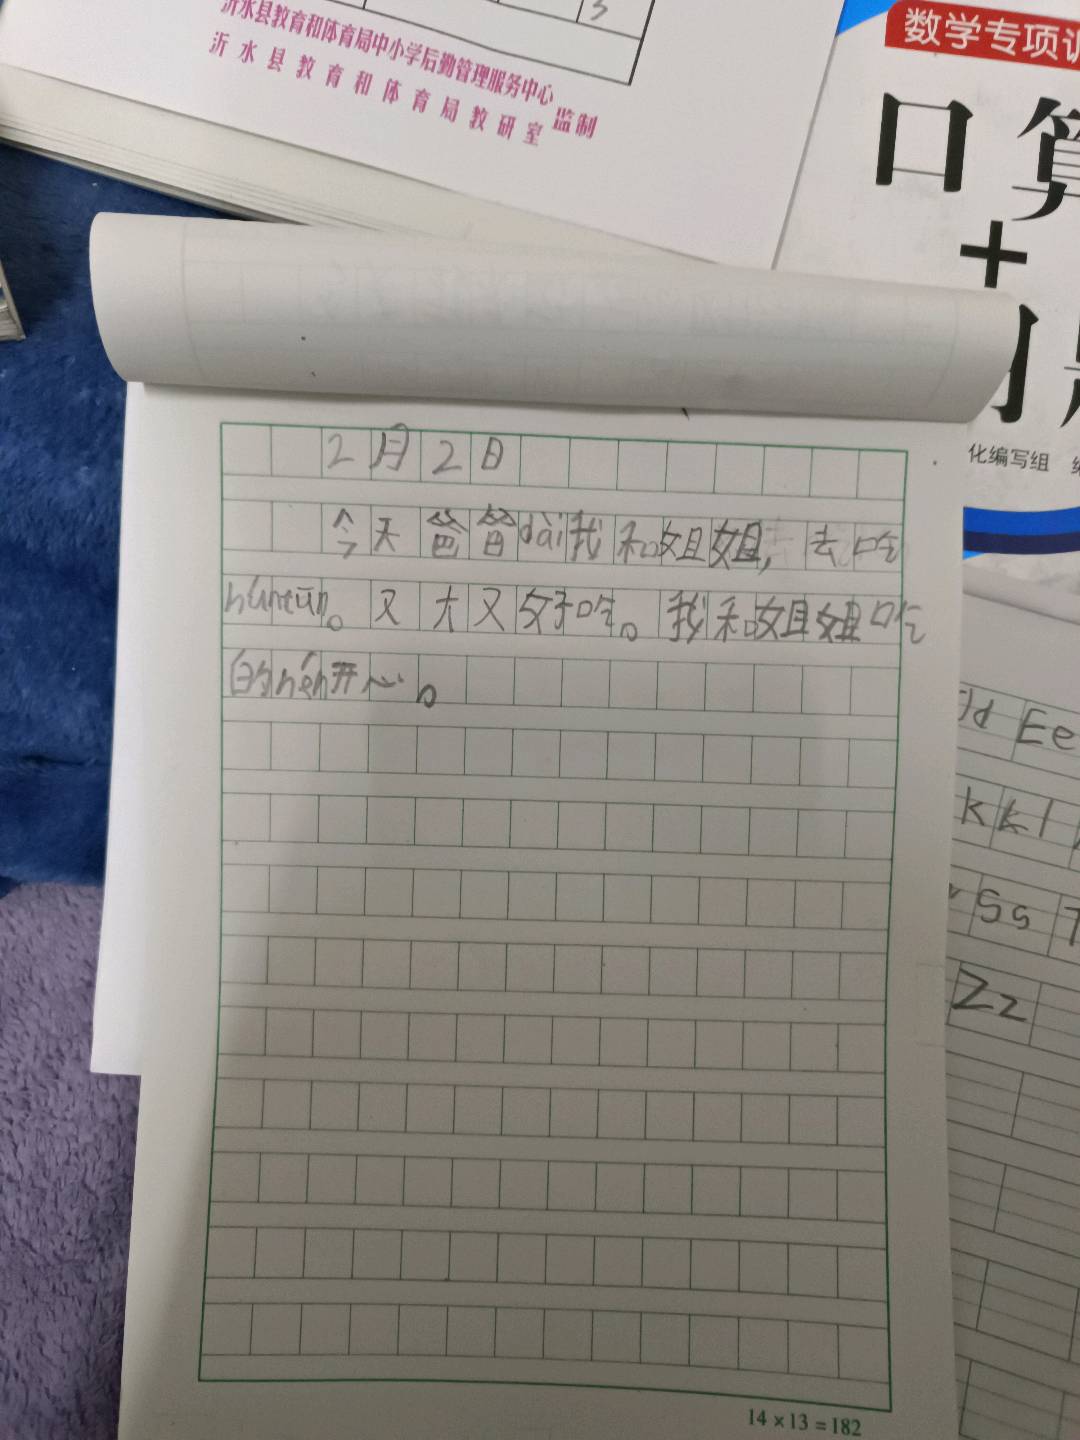 沂水县教育和体育局中小学后勤管理服务中心
沂水县教育和体育局教研室
监制
数学专项训
口算
+
化编写组
2月2日
今天爸爸dài我和姐姐，去吃
húntún。又大又好吃。我和姐姐吃
的hěn开心。
14×13=182
Ee
kkl
Ss T
Zz